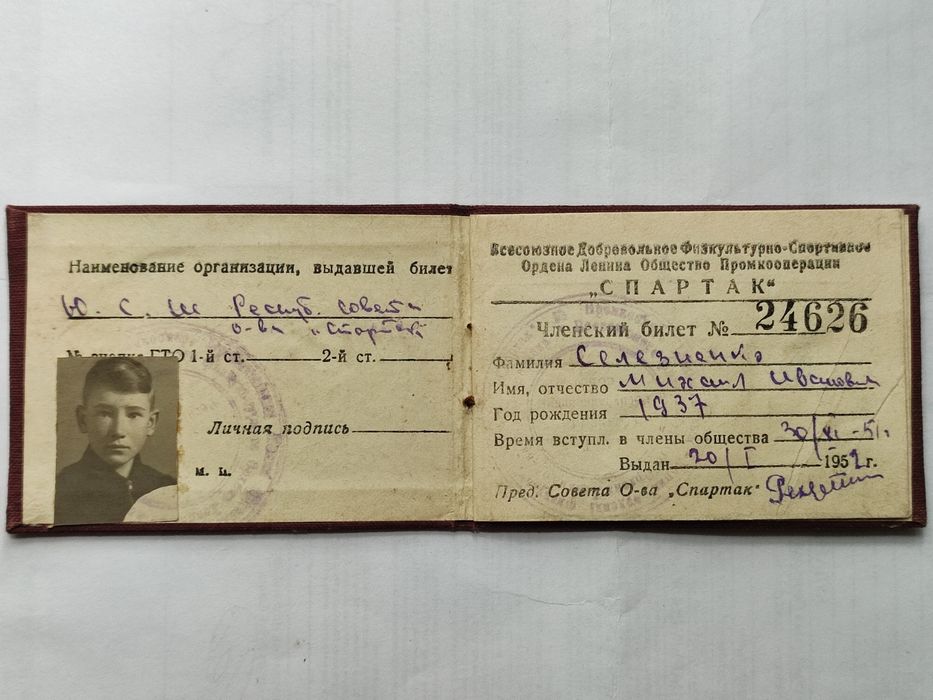 Наименование организации, выдавшей билет
Ю. С. Ш Респуб. совета
о-ва „Спартак"
№ значка ГТО 1-й ст. 2-й ст.
Личная подпись
м. п.
Всесоюзное Добровольное Физкультурно-Спортивное
Ордена Ленина Общество Промкооперации
„СПАРТАК"
Членский билет № 24626
Фамилия Селезненко
Имя, отчество Михаил Иванович
Год рождения 1937
Время вступл. в члены общества 30/XI-51г.
Выдан 20/I 1952г.
Пред. Совета О-ва „Спартак"